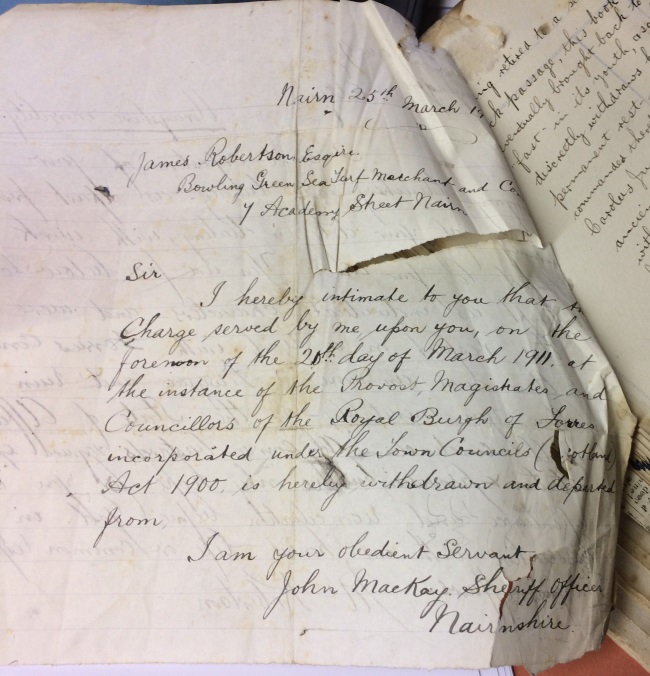 Nairn 25th March 19
James Robertson Esqire
Bowling Green Sea Turf Merchant and Co
7 Academy Street Nairn
Sir
I hereby intimate to you that
Charge served by me, upon you, on the
forenoon of the 20th day of March 1911. at
the instance of the Provost, Magistrates, and
Councillors of the Royal Burgh of Forres,
incorporated under the Town Councils (Scotland)
Act 1900, is hereby withdrawn and departed
from
I am your obedient Servant
John MacKay. Sheriff Officer
Nairnshire.
retired to a
passage, this book
eventually brought back to
fast in its youth, also
discretly withdraws
permanent rest
commandes
Carolas